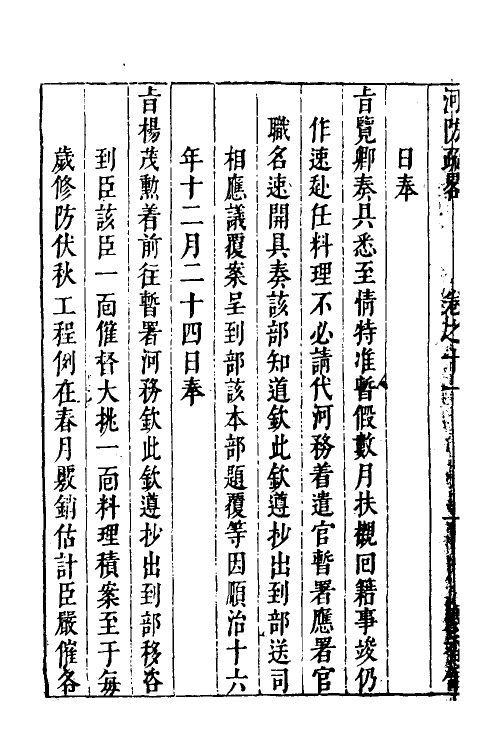 河防疏畧 卷之十
日奉
旨覽卿奏具悉至情特准暫假數月扶櫬回籍事竣仍
作速赴任料理不必請代河務着遣官暫署應署官
職名速開具奏該部知道欽此欽遵抄出到部送司
相應議覆案呈到部該本部題覆等因順治十六
年十二月二十四日奉
旨楊茂勳着前往暫署河務欽此欽遵抄出到部移咨
到臣該臣一面催督大挑一面料理積案至于每
歲修防伏秋工程例在春月覈銷估計臣嚴催各